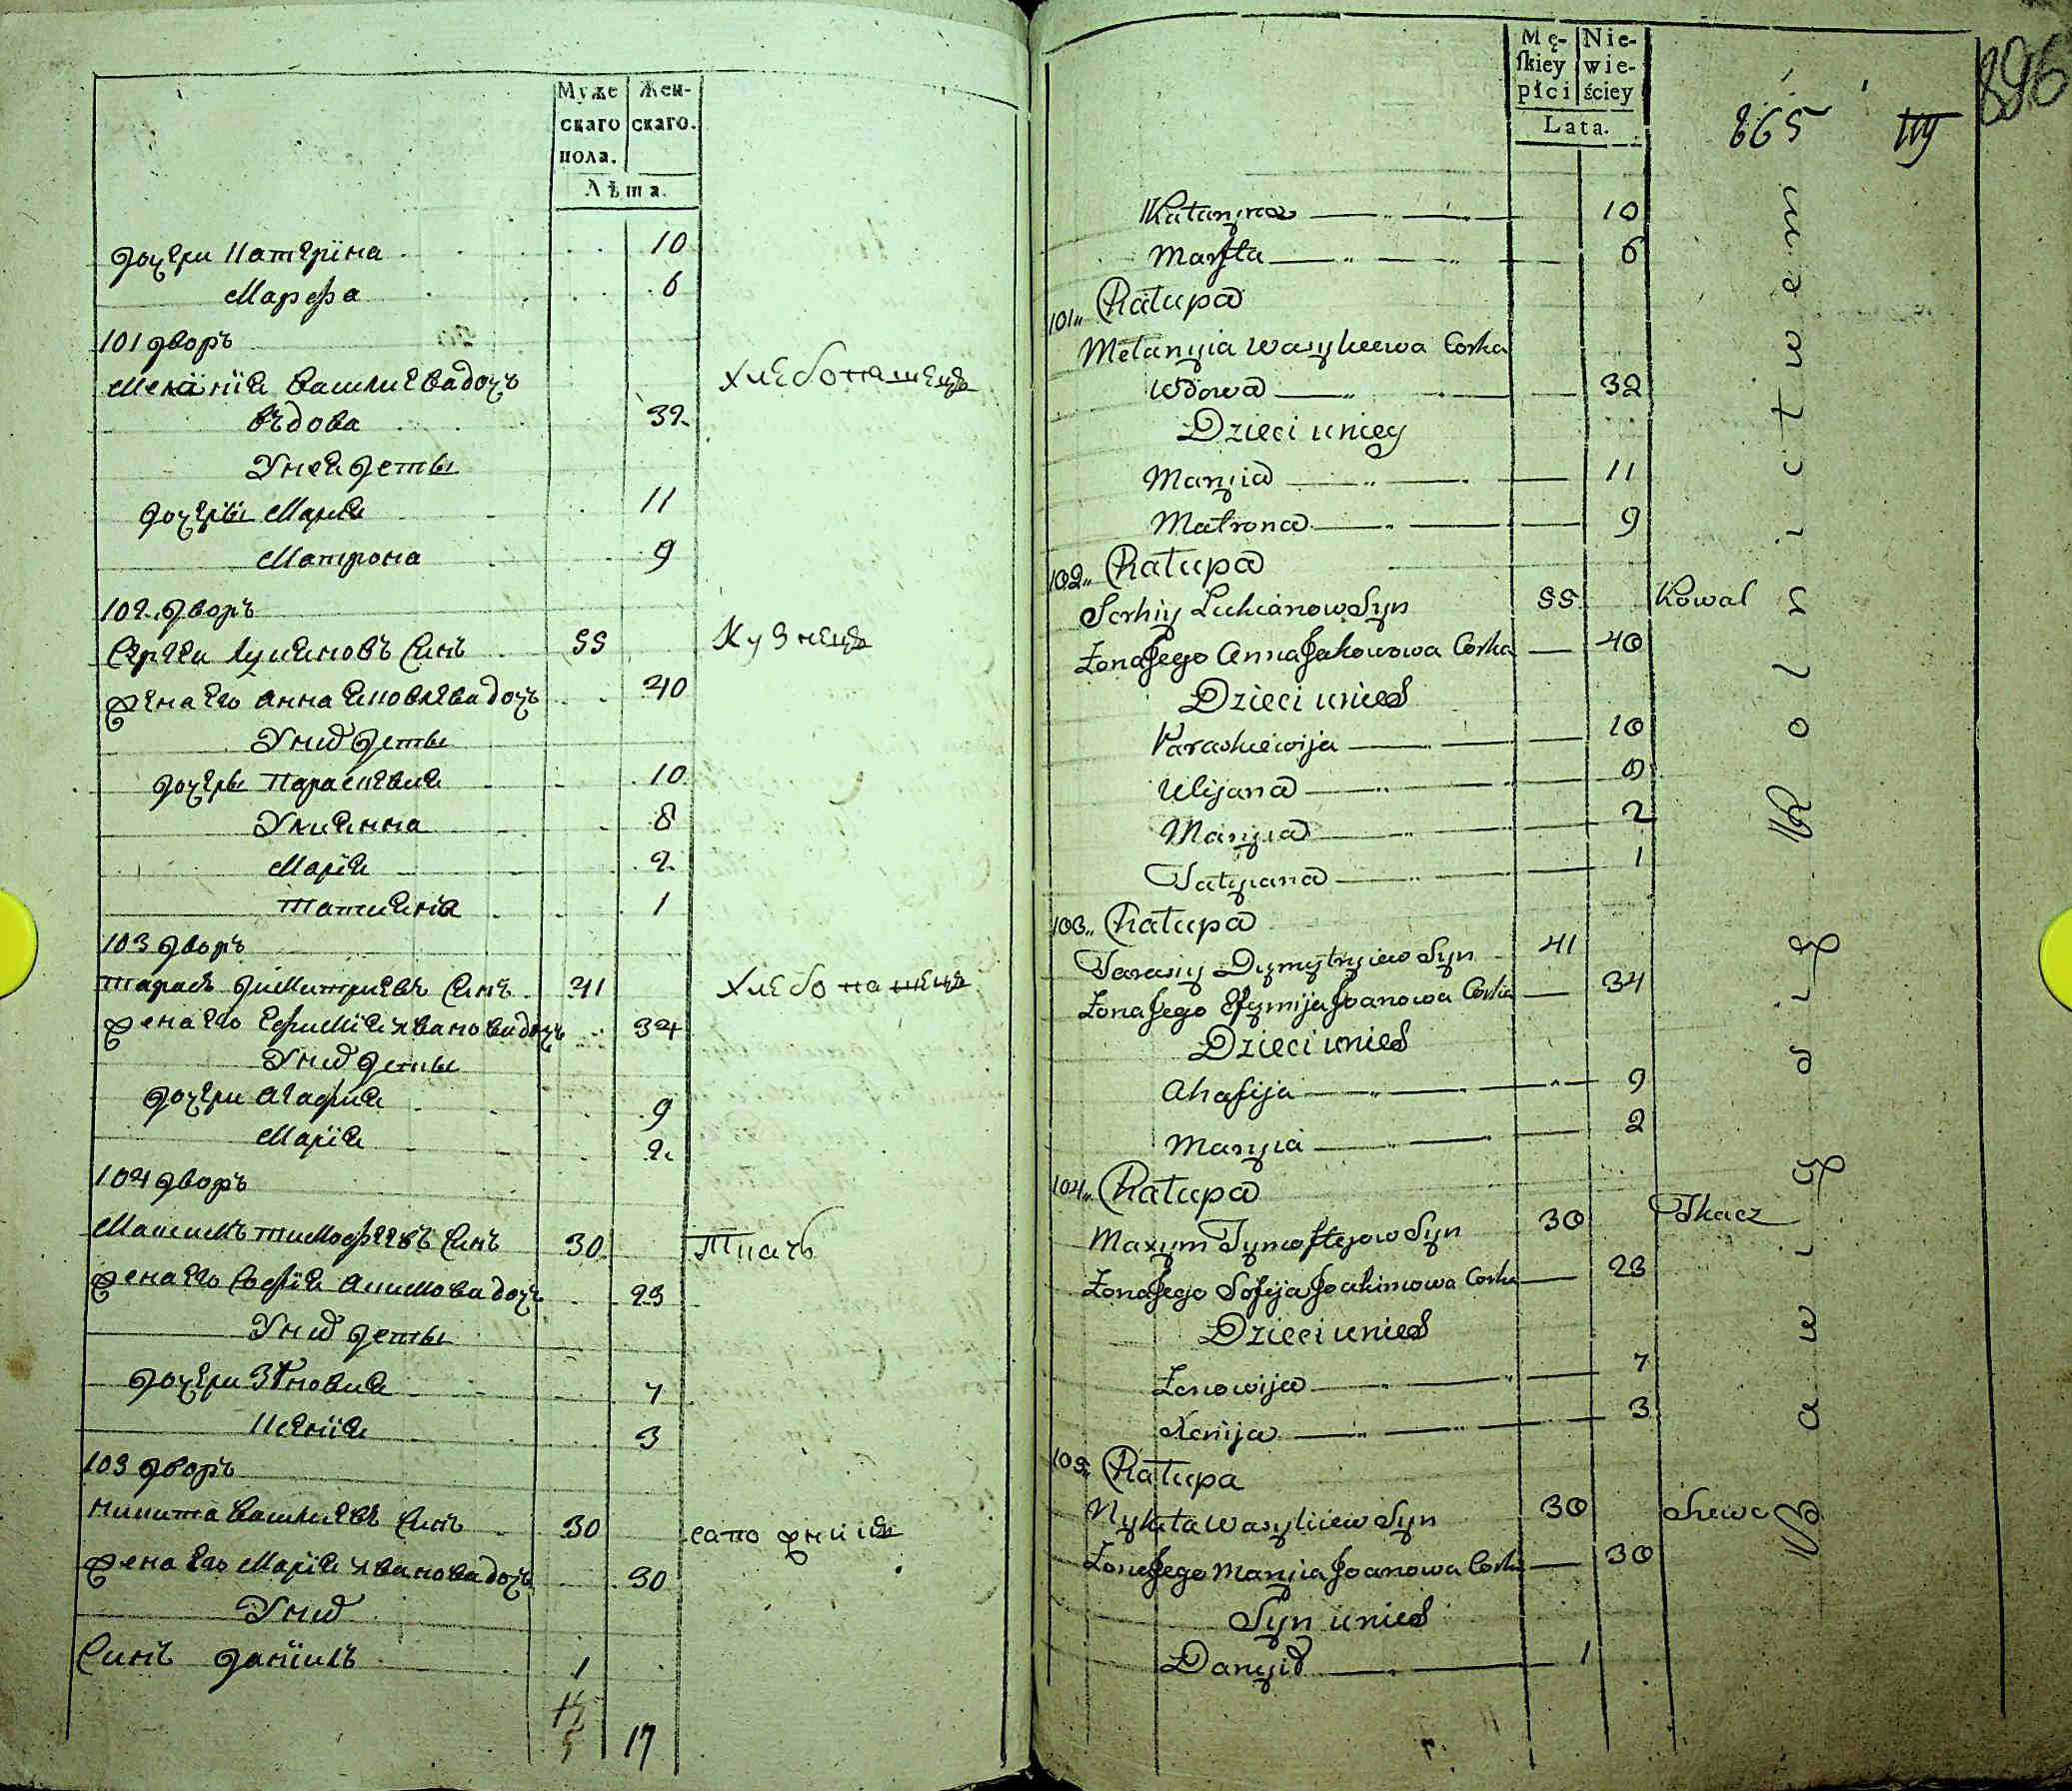 Муже
скаго
пола.
Жен-
скаго.
Лѣта.
дочери Катеріна 10
Марфа 6
101 дворъ
Меланіа Василиева дочъ хлебопашецъ
въдова 32
Унеа деты
дочеры Мариа 11
Матрона 9
102 дворъ
Сергеи Лукиановъ Синъ 55 Кузнецъ
жена его Анна Яковлева дочъ 40
Уних деты
дочеры Параскевиа 10
Улианна 8
Маріа 2
Татиана 1
103 дворъ
Тарасъ Димитриевъ Синъ 41 хлебопашецъ
жена его Ефиміа Иванова дочъ 34
Уних деты
дочери Агафиа 9
Маріа 2
104 дворъ
Максимъ Тимофеевъ Синъ 30 Ткачъ
жена его Софіа Акимова дочъ 23
Уних деты
дочери Зѣновиа 7
Ксеніа 3
105 дворъ
Никита Василиевъ Синъ 30 сапожникъ
жена его Маріа Иванова дочъ 30
Уних
Синъ Даніилъ 1
5 17
Mę-
ſkiey
płci
Nie-
wie-
ściey
Lata.
865
896
Katarzyna 10
Marfta 6
101 Chałupa
Mełanyia Wasylewa Corka
Wdowa 32
Dzieci u niey
Maryia 11
Matrona 9
102 Chałupa
Serhiy Lukianow Syn 55 Kowal
Żona Jego Anna Jakowowa Corka 40
Dzieci u nich
Paraskiewija 10
Ulijana 8
Maryia 2
Tatyiana 1
103 Chałupa
Tarasiy Dymytryiew Syn 41
Żona Jego Efymija Joanowa Corka 34
Dzieci u nich
Ahafija 9
Maryia 2
104 Chałupa
Maxym Tymoftejow Syn 30 Tkacz
Żona Jego Sofija Joakimowa Corka 23
Dzieci u nich
Zenowija 7
Xenija 3
105 Chałupa
Nykita Wasyliiew Syn 30 Szewc
Żona Jego Maryia Joanowa Corka 30
Syn u nich
Danyił 1
Bawią się Rolnictwem